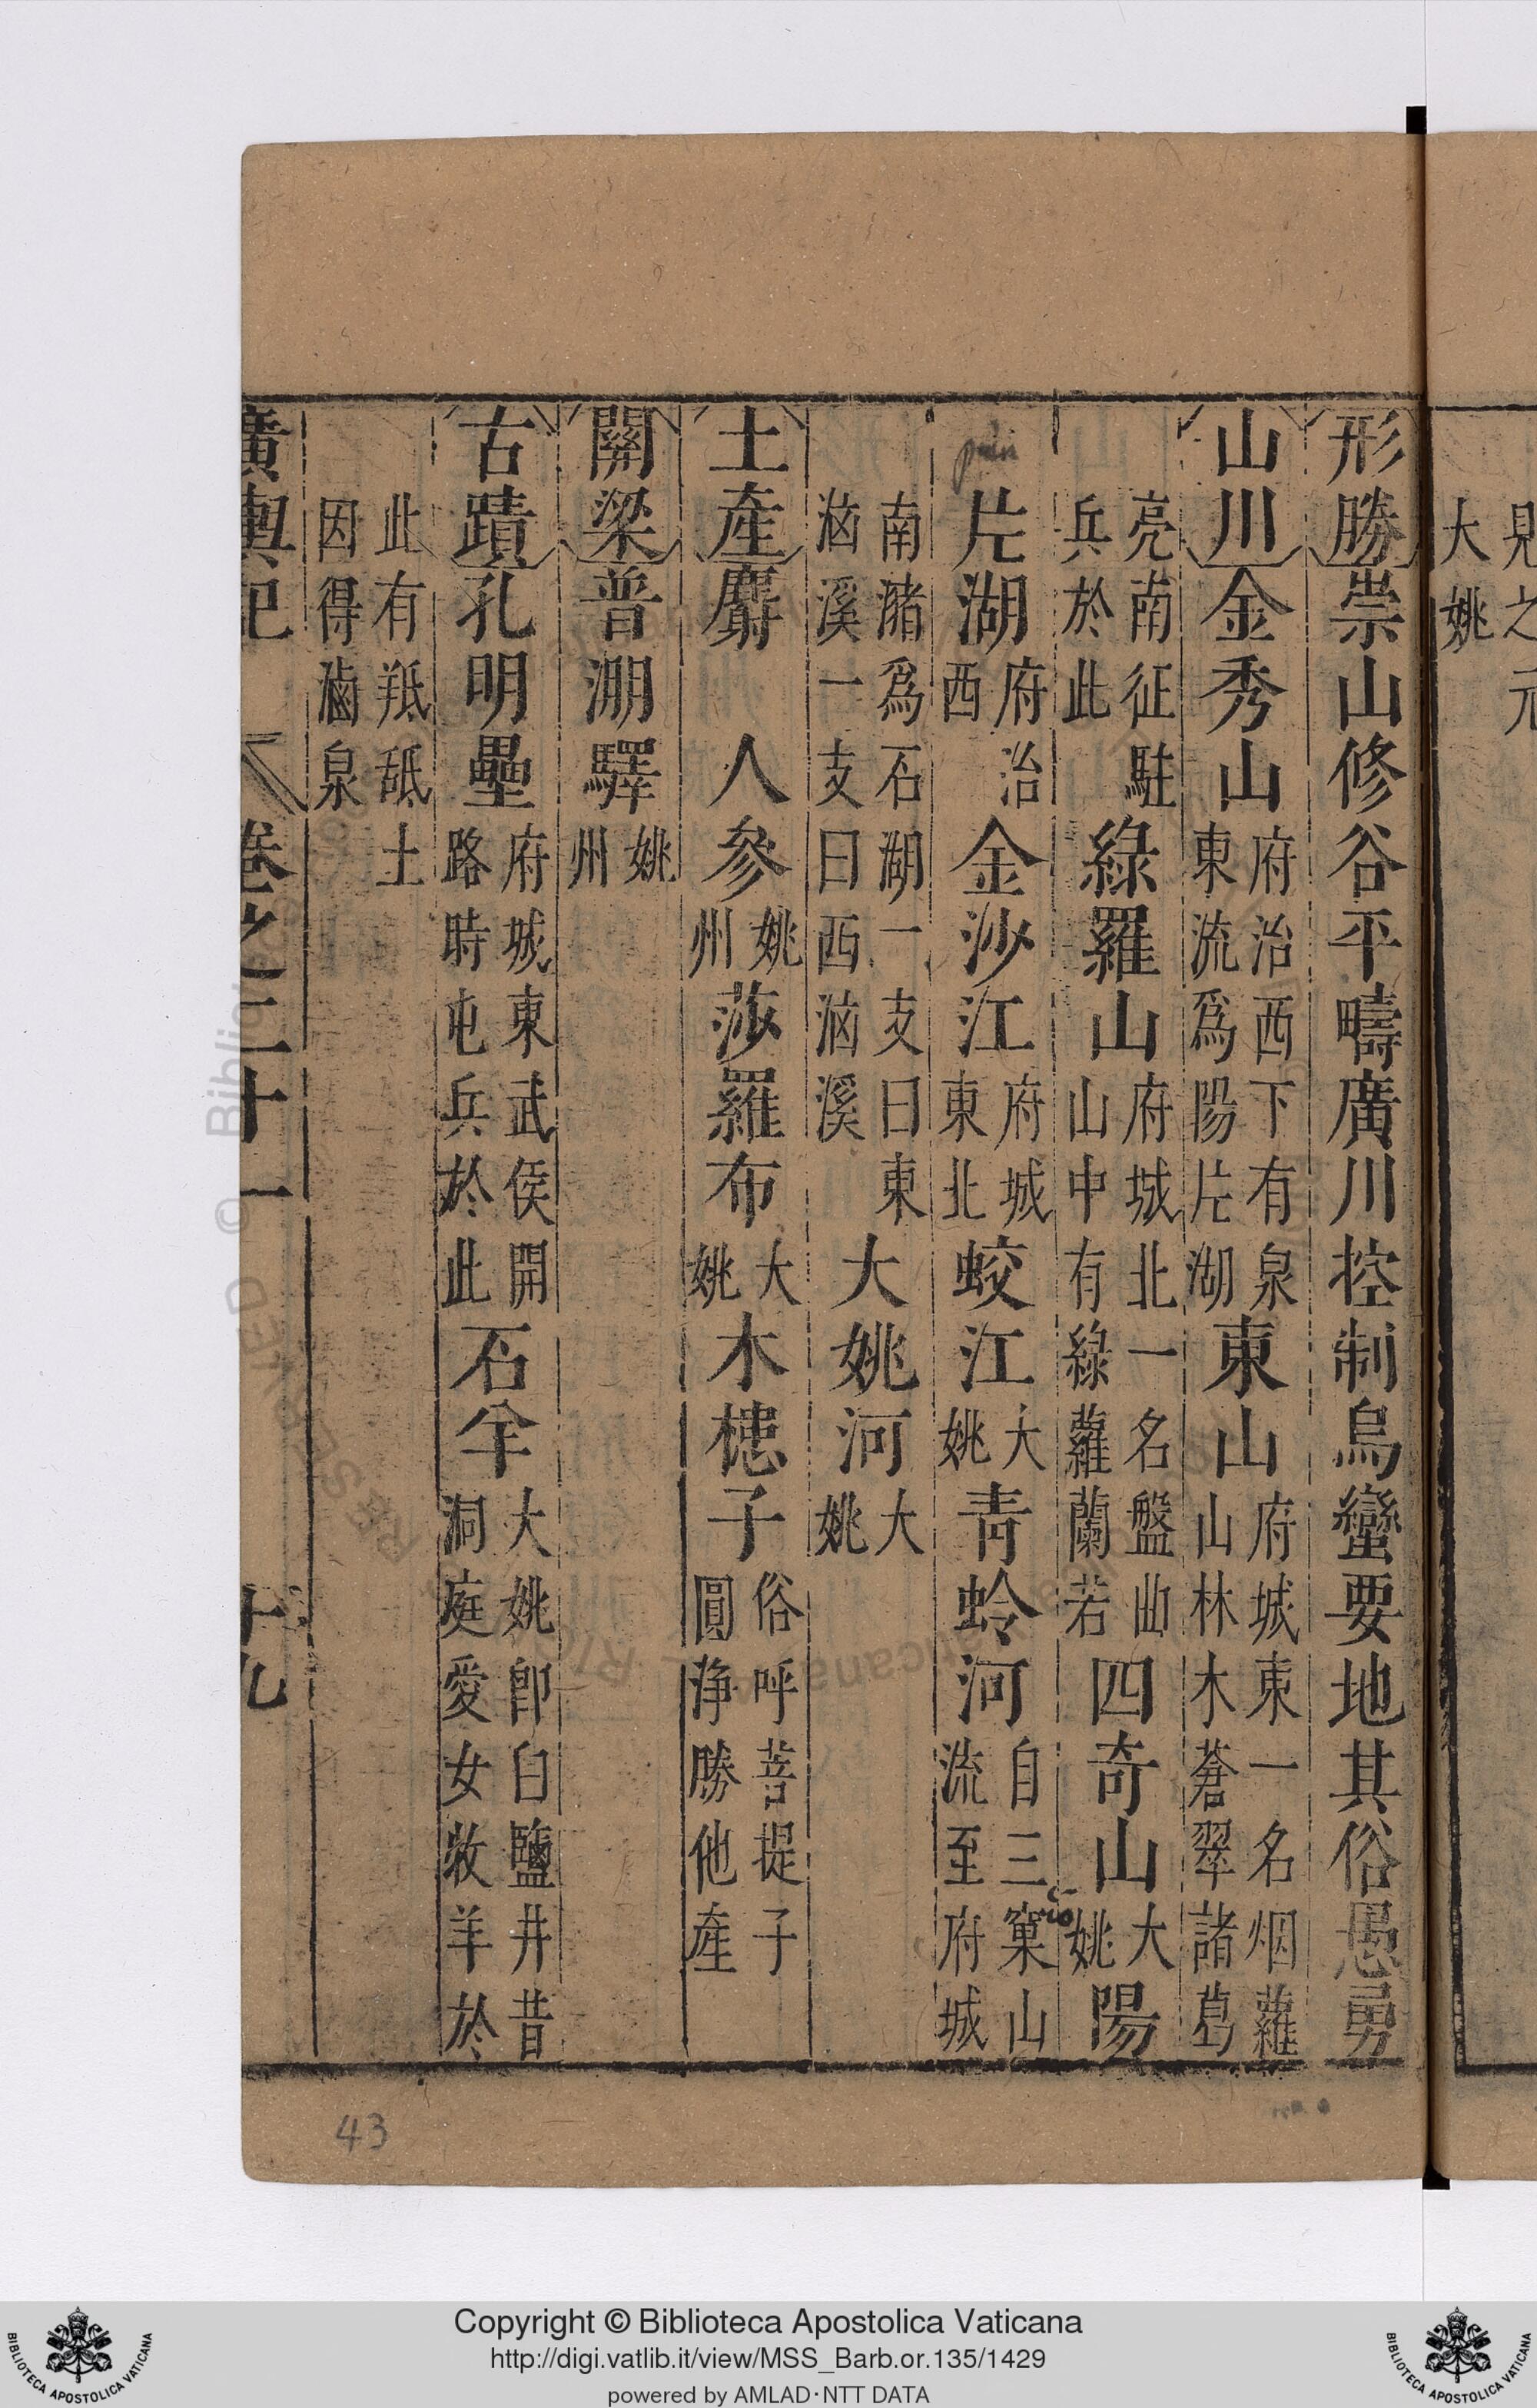 見之元
大姚
形勝崇山修谷平疇廣川控制烏蠻要地其俗愚勇
山川金秀山府治西下有泉東流爲陽片湖東山府城東一名烟蘿山林木蒼翠諸葛
亮南征駐兵於此綠羅山府城北一名盤曲山中有綠蘿蘭若四奇山大姚陽
片湖府治西金沙江府城東北蛟江大姚青蛉河自三窠山流至府城
南瀦爲石湖一支曰東𣳫溪一支曰西𣳫溪大姚河大姚
土產麝人參姚州莎羅布大姚木槵子俗呼菩提子圓淨勝他產
關梁普淜驛姚州
古蹟孔明壘府城東武侯開路時屯兵於此石羊大姚卽白鹽井昔洞庭愛女牧羊於
此有羝舐土因得滷泉
廣輿記 卷之二十一 十九
43
Copyright © Biblioteca Apostolica Vaticana
http://digi.vatlib.it/view/MSS_Barb.or.135/1429
powered by AMLAD·NTT DATA
BIBLIOTECA APOSTOLICA VATICANA
BIBLIOTECA APOSTOLICA VATICANA